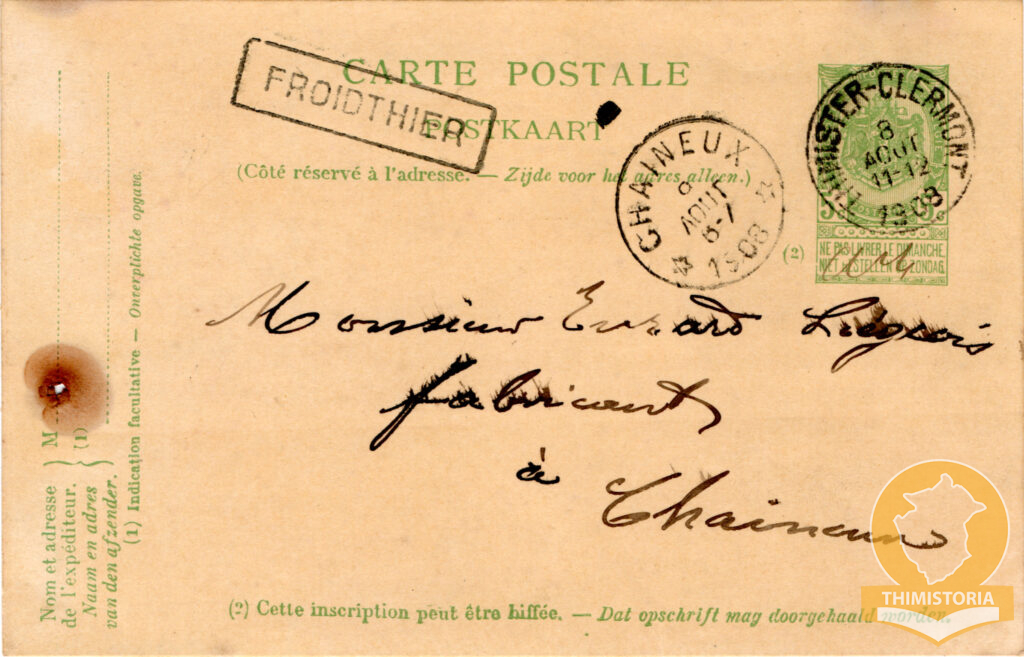 CARTE POSTALE
FROIDTHIER
POSTKAART
(Côté réservé à l'adresse. — Zijde voor het adres alleen.)
CHAINEUX
8
AOUT
6-7
1908
THIMISTER-CLERMONT
8
AOUT
11-12
1908
5c POSTES 5c
(2)
NE PAS LIVRER LE DIMANCHE.
NIET BESTELLEN OP ZONDAG.
Monsieur Evrard Liégeois
fabricant
à
Chaineux
M
(1)
Nom et adresse
de l'expéditeur.
Naam en adres
van den afzender.
(1) Indication facultative — Onverplichte opgave.
(2) Cette inscription peut être biffée. — Dat opschrift mag doorgehaald worden.
THIMISTORIA